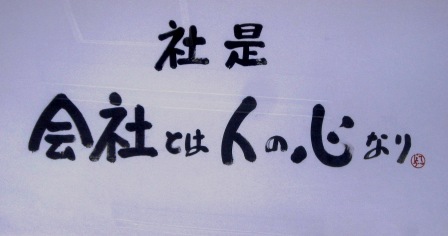 社是
会社とは人の心なり